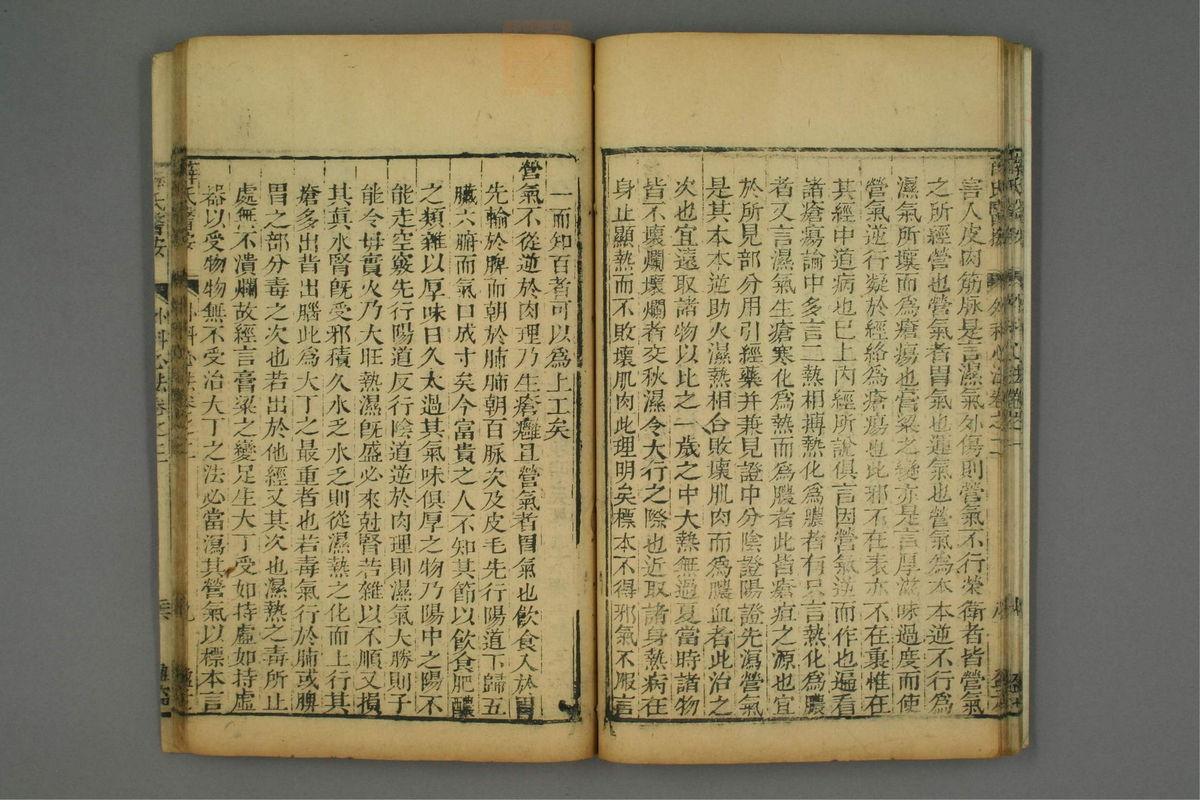 害人皮肉筋脉是言濕氣外傷則營氣不行榮衛者皆營氣
之所經營也營氣者胃氣也運氣也營氣為本本逆不行為
濕氣所壞而為瘡瘍也膏粱之變亦是言厚滋味過度而使
營氣逆行凝於經絡為瘡瘍也此邪不在表亦不在裏惟在
其經中道病也已上內經所說俱言因營氣逆而作也遍看
諸瘡瘍論中多言二熱相搏熱化為膿者有只言熱化為膿
者又言濕氣生瘡寒化為熱而為膿者此皆瘡疽之源也宜
於所見部分用引經藥并兼見證中分陰證陽證先瀉營氣
是其本本逆助火濕熱相合敗壞肌肉而為膿血者此治之
次也宜遠取諸物以比之一歲之中大熱無過夏當時諸物
皆不壞爛壞爛者交秋濕令大行之際也近取諸身熱病在
身止顯熱而不敗壞肌肉此理明矣標本不得邪氣不服言
一而知百者可以為上工矣
營氣不從逆於肉理乃生瘡癰且營氣者胃氣也飲食入於胃
先輸於脾而朝於肺肺朝百脉次及皮毛先行陽道下歸五
臟六腑而氣口成寸矣今富貴之人不知其節以飲食肥醲
之類雜以厚味日久太過其氣味俱厚之物乃陽中之陽不
能走空竅先行陽道反行陰道逆於肉理則濕氣大勝則子
能令母實火乃大旺熱濕旣盛必來尅腎若雜以不順又損
其真水腎旣受邪積久水乏水乏則從濕熱之化而上行其
瘡多出背出腦此為大丁之最重者也若毒氣行於肺或脾
胃之部分毒之次也若出於他經又其次也濕熱之毒所止
處無不潰爛故經言膏粱之變足生大丁受如持虛如持虛
器以受物物無不受治大丁之法必當瀉其營氣以標本言
薛氏醫按
外科心法卷之二